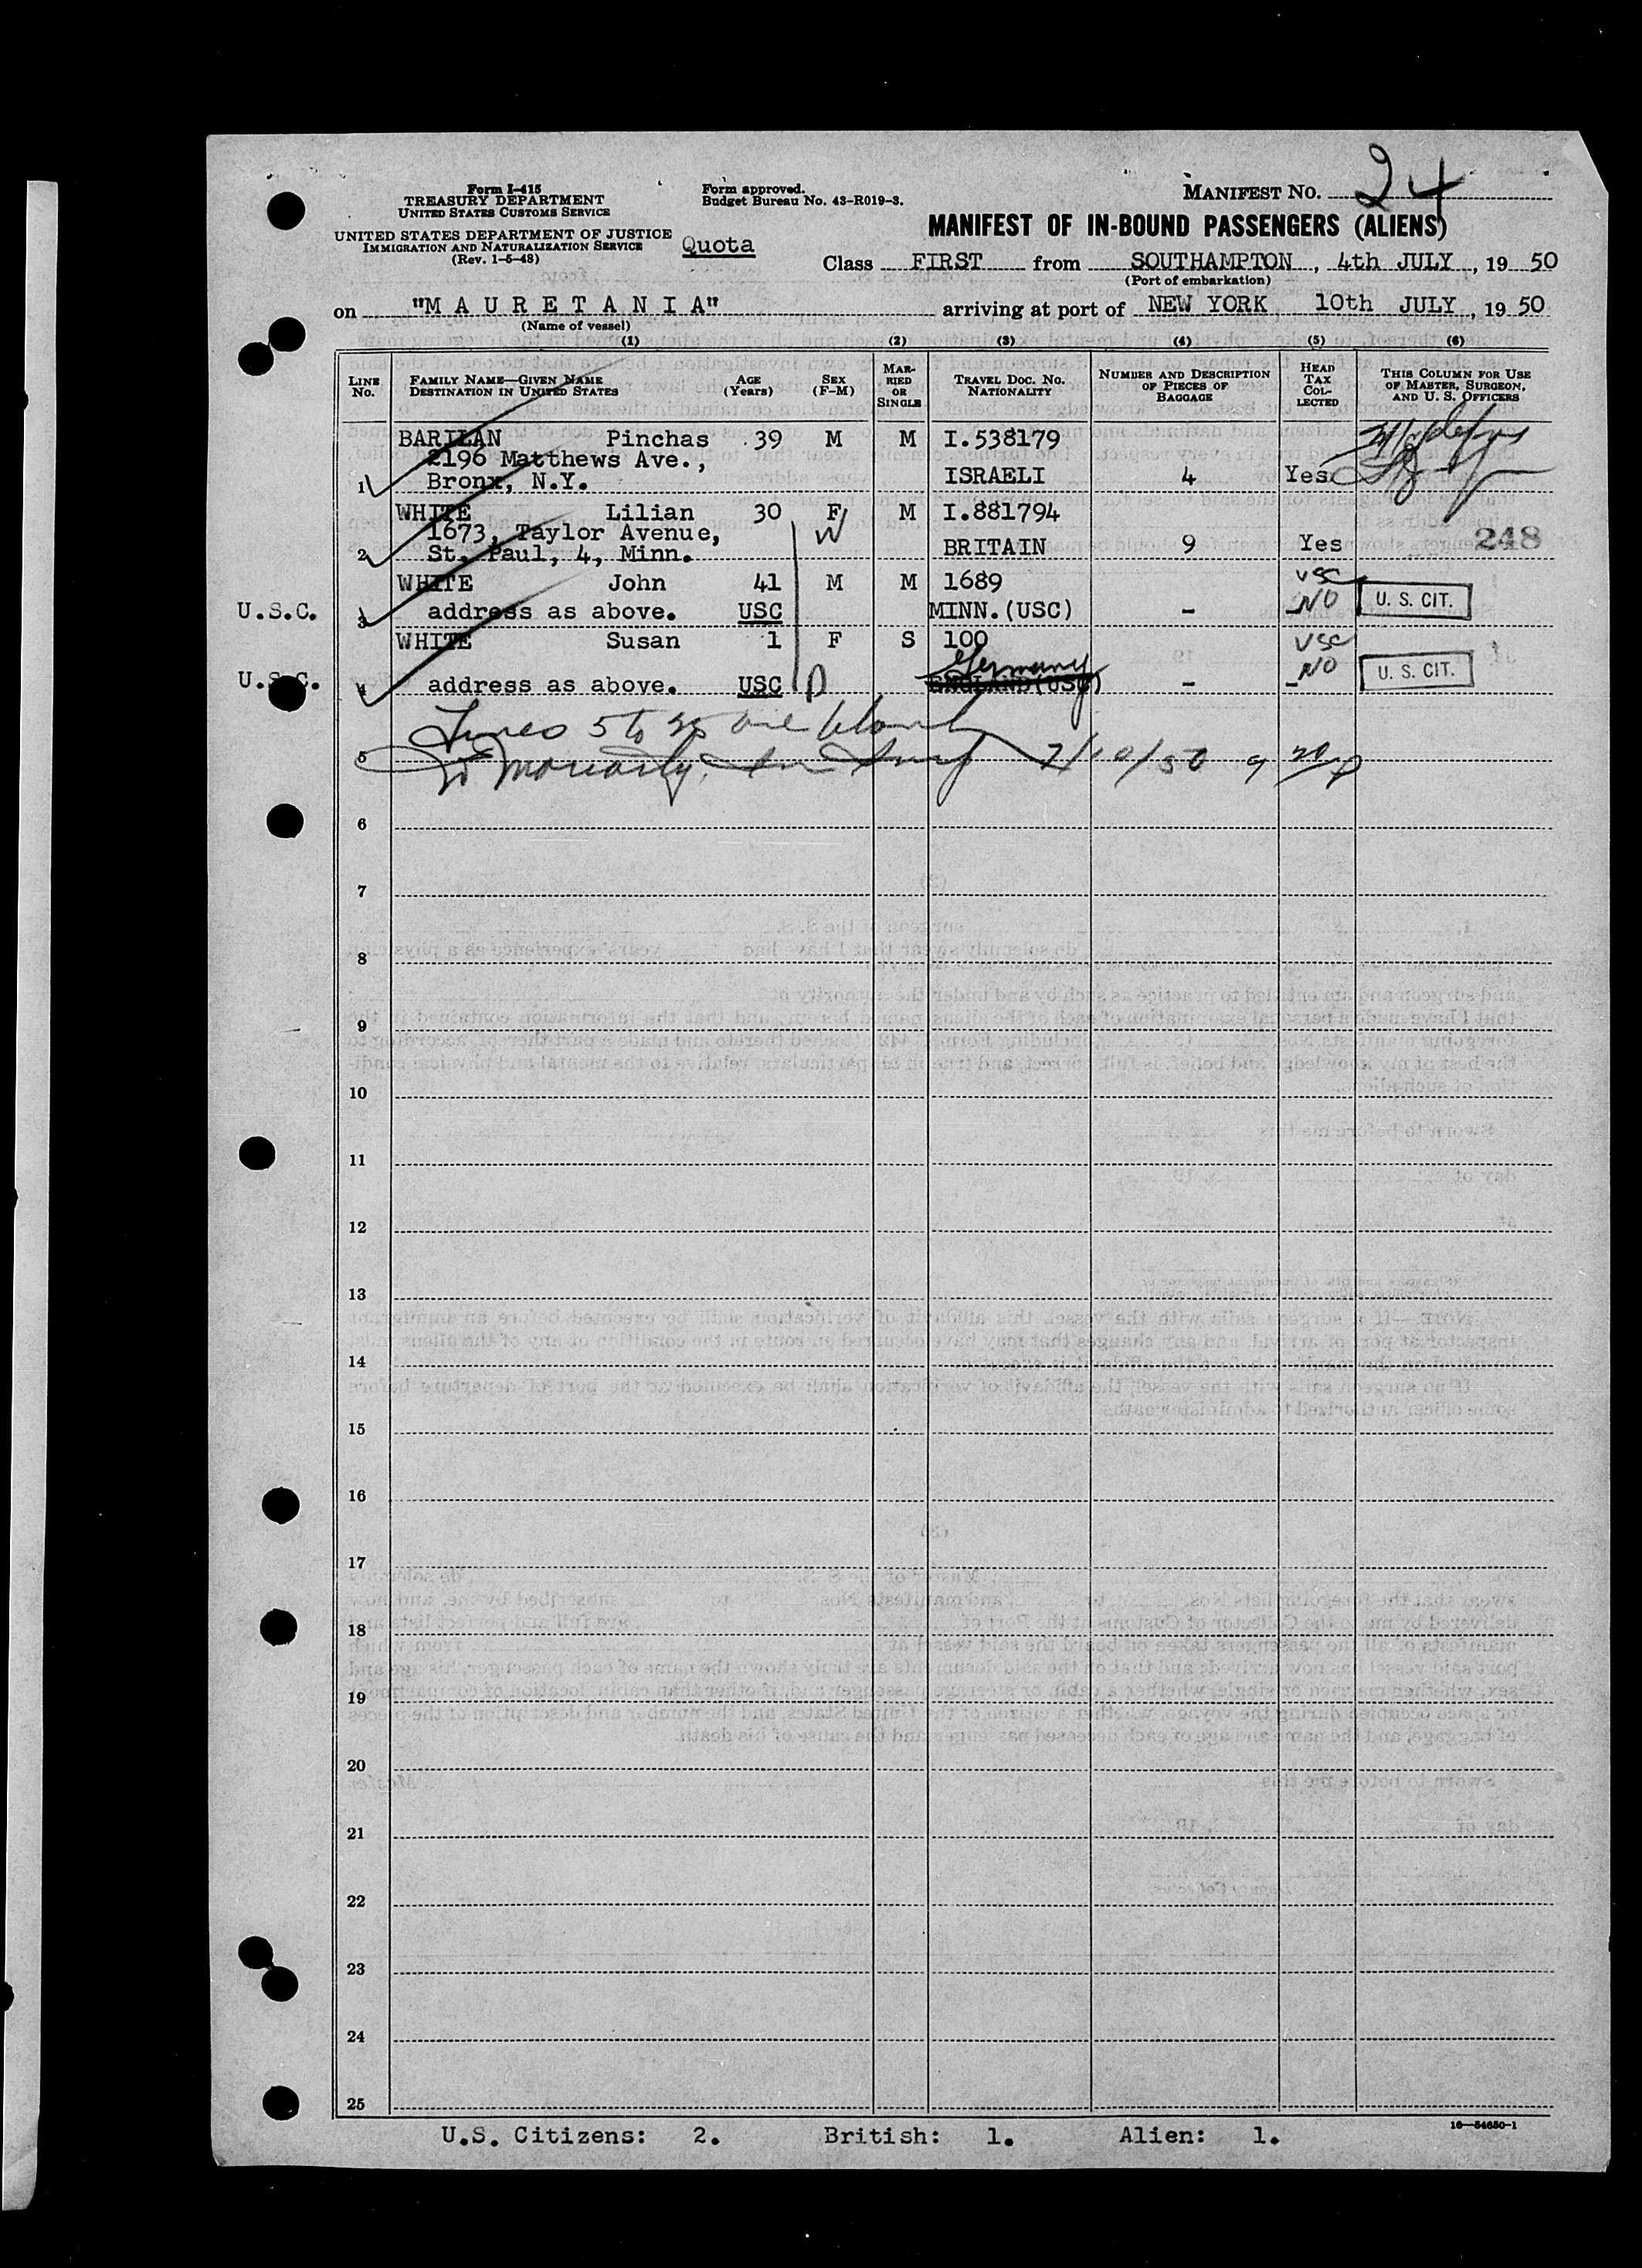 Form I-415
TREASURY DEPARTMENT
UNITED STATES CUSTOMS SERVICE
UNITED STATES DEPARTMENT OF JUSTICE
IMMIGRATION AND NATURALIZATION SERVICE
(Rev. 1-5-48)
Form approved.
Budget Bureau No. 43-R019-3.
Quota
MANIFEST NO. 24
MANIFEST OF IN-BOUND PASSENGERS (ALIENS)
Class FIRST from SOUTHAMPTON, 4th JULY, 19 50
(Port of embarkation)
on "M A U R E T A N I A" arriving at port of NEW YORK 10th JULY, 19 50
(Name of vessel)
(1) (2) (3) (4) (5) (6)
LINE No. FAMILY NAME—GIVEN NAME DESTINATION IN UNITED STATES AGE (Years) SEX (F-M) MARRIED OR SINGLE TRAVEL DOC. NO. NATIONALITY NUMBER AND DESCRIPTION OF PIECES OF BAGGAGE HEAD TAX COLLECTED THIS COLUMN FOR USE OF MASTER, SURGEON, AND U. S. OFFICERS
BARILAN Pinchas 39 M M I.538179
2196 Matthews Ave.,
1 Bronx, N.Y. ISRAELI 4 Yes
WHITE Lilian 30 F M I.881794
1673, Taylor Avenue, W
2 St. Paul, 4, Minn. BRITAIN 9 Yes 248
WHITE John 41 M M 1689 USC
U.S.C. 3 address as above. USC MINN.(USC) - NO U. S. CIT.
WHITE Susan 1 F S 100 USC
Germany
U.S.C. 4 address as above. USC ENGLAND(USC) - NO U. S. CIT.
Lines 5 to 25 are blank
5 Moriarty 7/10/50 9 20 P
6
7
8
9
10
11
12
13
14
15
16
17
18
19
20
21
22
23
24
25
16—54650-1
U.S. Citizens: 2. British: 1. Alien: 1.